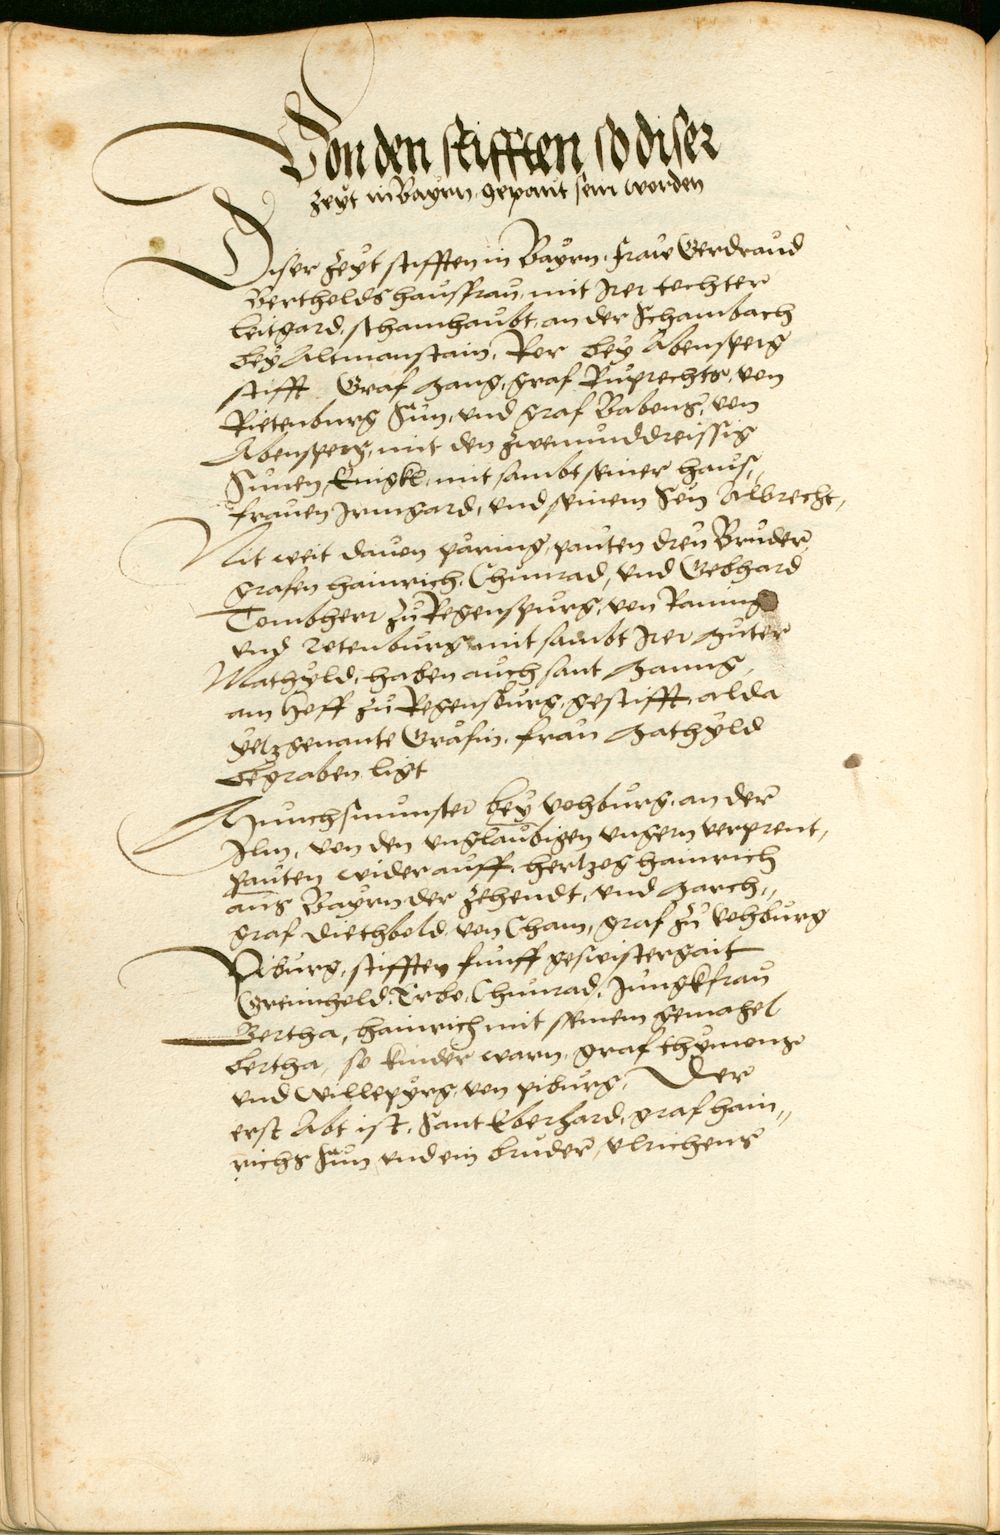 Von den stifften so diser
zeyt in Bayrn gepaut sein worden
Diser zeyt stifften in Bayrn, Fraw Gerdraud
Bertholds hausfrau, mit Irer tochter
Leitgard, schamhaubt, an der Schambach
bey Altmanstain, Ror bey Abensperg
stifft Graf Hanng, graf Ruprechts, von
Rietenburg Sun, vnd graf Babons, von
Abensperg, mit den zwenunddreissig
Sunen Enigkl, mit sambt seiner haus,,
frauen Irmgard, vnd seinem Sun Albrecht,
Nit weit dauon päring, pauten dreu Bruder
grafen hainrich, Chunrad, vnd Gebhard
Tombherr zu Regenspurg, von Raning
vnd Rotenburg mit sambt Irer Muter
Mathyld, haben auch sant Manng
am Hoff zu Regensburg, gestifft, alda
yetzgenante Gräfin, frau Mathyld
begraben ligt
Munchsmunster bey vohburg, an der
Ilm, von den vnglaubigen vngern verprent,
pauten wider auff, hertzog hainrich
aus Bayrn der zehendt, vnd March,,
graf Diethbold von Cham, graf zu vohburg
Piburg, stifften funff geswistergait
Greimhold, Erbo, Chunrad, Jungkfrau
Bertha, hainrich mit seinem gemahel
bertha, so kinder warn, graf thymons
vnd Willepyrg, von piburg, Der
erst Abt ist, Sant Eberhard, graf hain,,
richs Sun vnd ein bruder, vlrichens